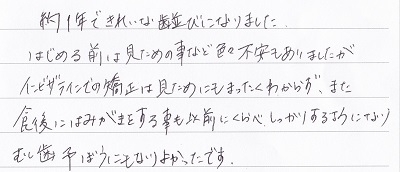 約1年できれいな歯並びになりました。
はじめる前は見ための事など色々不安もありましたが
インビザラインでの矯正は見ためにもまったくわからず、また
食後にはみがきをする事も以前にくらべ、しっかりするようになり
むし歯予ぼうにもなりよかったです。